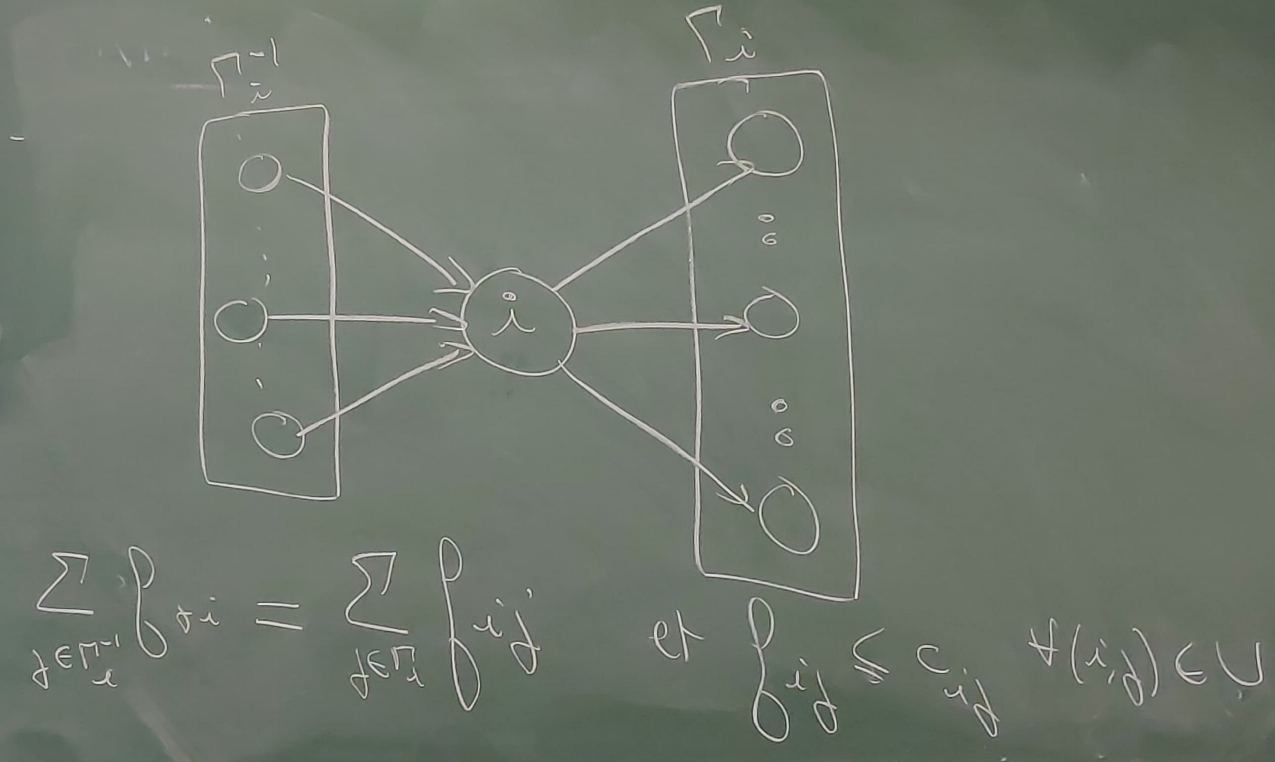 Γᵢ⁻¹
Γᵢ
i
∑_{j∈Γᵢ⁻¹} f_{ji} = ∑_{j∈Γᵢ} f_{ij} et f_{ij} ≤ c_{ij} ∀(i,j) ∈ U